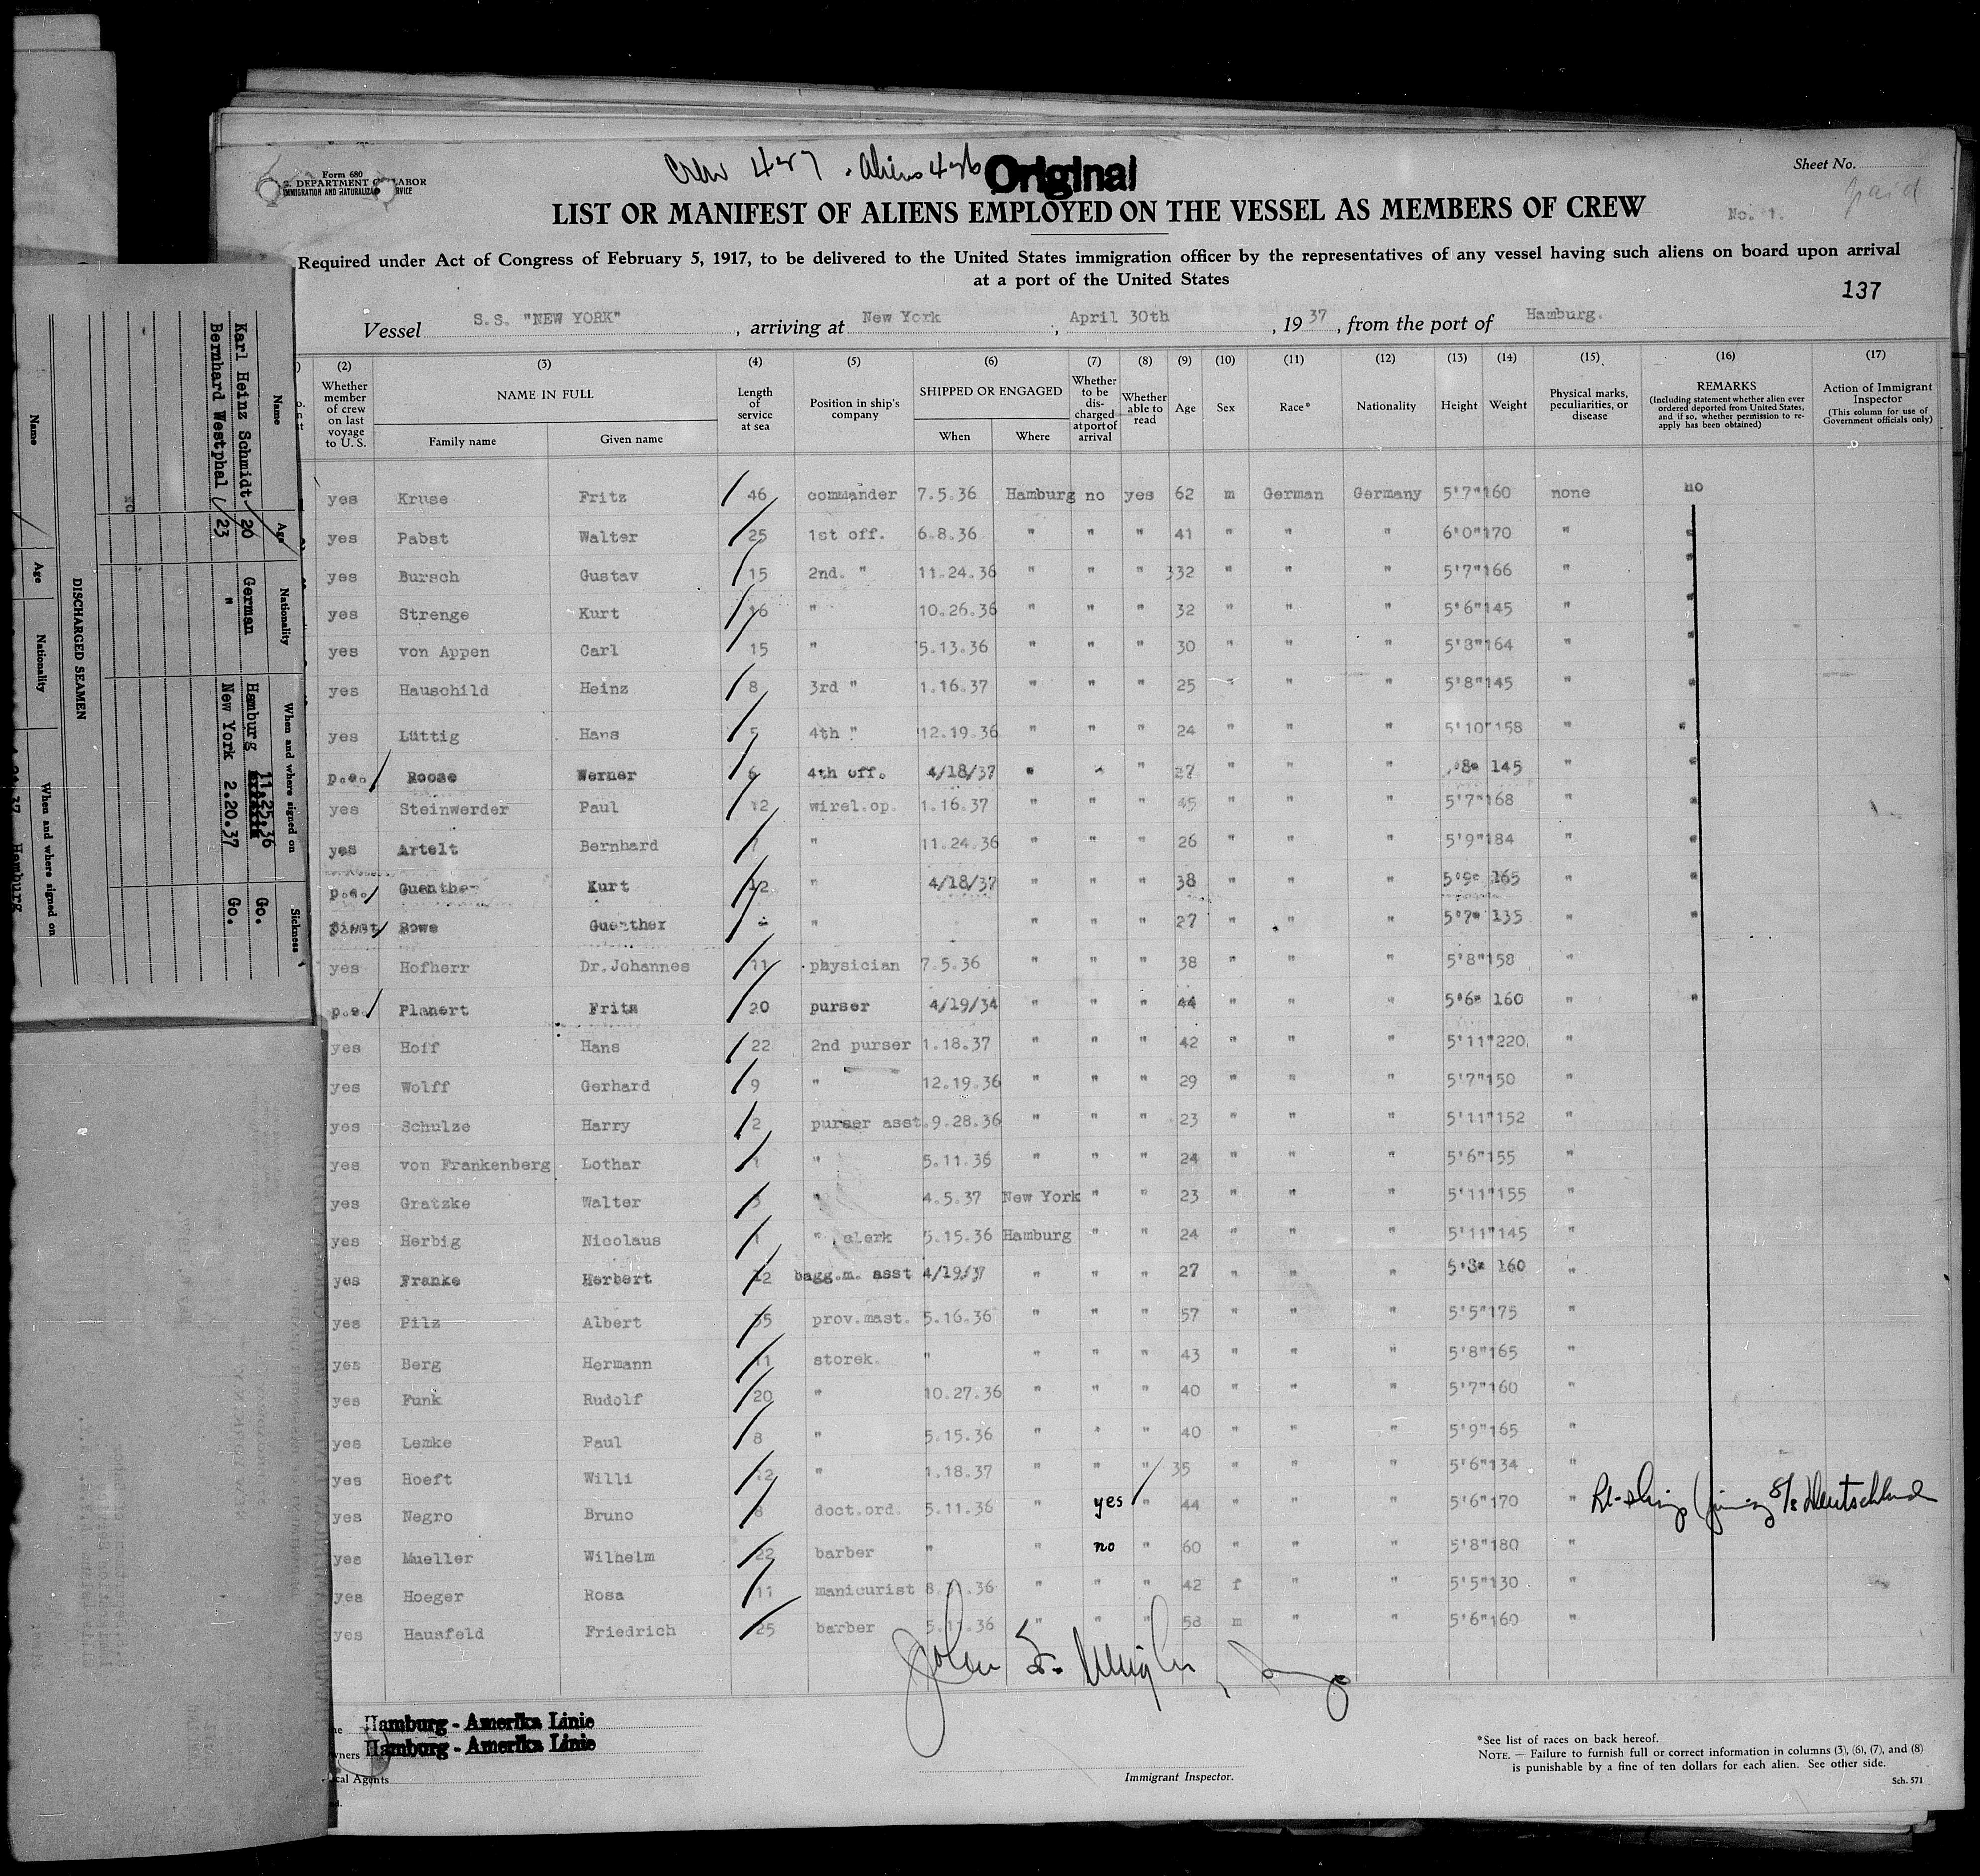 Form 680
DEPARTMENT OF LABOR
IMMIGRATION AND NATURALIZATION SERVICE
Crew 427 . Aliens 426
Original
Sheet No.
paid
LIST OR MANIFEST OF ALIENS EMPLOYED ON THE VESSEL AS MEMBERS OF CREW
No. 1.
Required under Act of Congress of February 5, 1917, to be delivered to the United States immigration officer by the representatives of any vessel having such aliens on board upon arrival
at a port of the United States
137
Vessel S.S. "NEW YORK" , arriving at New York , April 30th , 19 37 , from the port of Hamburg.
(2) (3) (4) (5) (6) (7) (8) (9) (10) (11) (12) (13) (14) (15) (16) (17)
Whether member of crew on last voyage to U. S. NAME IN FULL Family name Given name Length of service at sea Position in ship's company SHIPPED OR ENGAGED When Where Whether to be discharged at port of arrival Whether able to read Age Sex Race* Nationality Height Weight Physical marks, peculiarities, or disease REMARKS (Including statement whether alien ever ordered deported from United States, and if so, whether permission to re-apply has been obtained) Action of Immigrant Inspector (This column for use of Government officials only)
yes Kruse Fritz 46 commander 7.5.36 Hamburg no yes 62 m German Germany 5'7" 160 none no
yes Pabst Walter 25 1st off. 6.8.36 " " " 41 " " " 6'0" 170 " "
yes Bursch Gustav 15 2nd. " 11.24.36 " " " 332 " " " 5'7" 166 " "
yes Strenge Kurt 16 " 10.26.36 " " " 32 " " " 5'6" 145 " "
yes von Appen Carl 15 " 5.13.36 " " " 30 " " " 5'8" 164 " "
yes Hauschild Heinz 8 3rd " 1.16.37 " " " 25 " " " 5'8" 145 " "
yes Lüttig Hans 5 4th " 12.19.36 " " " 24 " " " 5'10" 158 " "
p.e. Roose Werner 6 4th off. 4/18/37 " " " 27 " " " '8" 145 " "
yes Steinwerder Paul 12 wirel.op. 1.16.37 " " " 45 " " " 5'7" 168 " "
yes Artelt Bernhard " 11.24.36 " " " 26 " " " 5'9" 184 " "
p.e. Guenther Kurt 12 " 4/18/37 " " " 38 " " " 5'9" 165 " "
first Rowe Guenther " " " " 27 " " " 5'7" 135 " "
yes Hofherr Dr.Johannes 11 physician 7.5.36 " " " 38 " " " 5'8" 158 "
p.e. Planert Fritz 20 purser 4/19/34 " " " 44 " " " 5'6" 160 " "
yes Hoff Hans 22 2nd purser 1.18.37 " " " 42 " " " 5'11" 220 "
yes Wolff Gerhard 9 " 12.19.36 " " " 29 " " " 5'7" 150 "
yes Schulze Harry 2 purser asst. 9.28.36 " " " 23 " " " 5'11" 152 "
yes von Frankenberg Lothar 1 " 5.11.36 " " " 24 " " " 5'6" 155 "
yes Gratzke Walter 3 " 4.5.37 New York " " 23 " " " 5'11" 155 "
yes Herbig Nicolaus 1 " clerk 5.15.36 Hamburg " " 24 " " " 5'11" 145 "
yes Franke Herbert 12 bagg.m. asst 4/19/37 " " " 27 " " " 5'8" 160 "
yes Pilz Albert 35 prov.mast. 5.16.36 " " " 57 " " " 5'5" 175 "
yes Berg Hermann 11 storek. " " " " 43 " " " 5'8" 165 "
yes Funk Rudolf 20 " 10.27.36 " " " 40 " " " 5'7" 160 "
yes Lemke Paul 8 " 5.15.36 " " " 40 " " " 5'9" 165 "
yes Hoeft Willi 12 " 1.18.37 " " " 35 " " " 5'6" 134 "
yes Negro Bruno 8 doct.ord. 5.11.36 " yes " 44 " " " 5'6" 170 " Re-ship (joining S/S Deutschland
yes Mueller Wilhelm 22 barber " " no " 60 " " " 5'8" 180 "
yes Hoeger Rosa 11 manicurist 8.31.36 " " " 42 f " " 5'5" 130 "
yes Hausfeld Friedrich 25 barber 5.11.36 " " " 58 m " " 5'6" 160 "
Hamburg - Amerika Linie
Owners Hamburg - Amerika Linie
Local Agents
Immigrant Inspector.
*See list of races on back hereof.
NOTE. — Failure to furnish full or correct information in columns (3), (6), (7), and (8)
is punishable by a fine of ten dollars for each alien. See other side.
Sch. 571
Name Age Nationality When and where signed on Sickness
Karl Heinz Schmidt 20 German Hamburg 11.25.36 Go.
Bernhard Westphal 23 " New York 2.20.37 Go.
DISCHARGED SEAMEN
Name Age Nationality When and where signed on
Hamburg